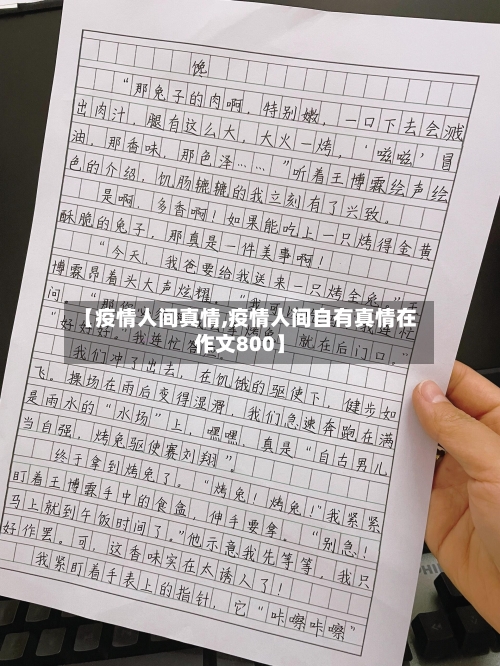 馋
“那兔子的肉啊，特别嫩，一口下去会溅
出肉汁，腿有这么大，大火一烤，‘嗞嗞’冒
油，那香味，那色泽……”听着王博霖绘声绘
色的介绍，饥肠辘辘的我立刻有了兴致。
是啊，多香啊！如果能吃上一只烤得金黄
酥脆的兔子，那真是一件美事啊！
“今天，我爸要给我送来一只烤全兔！”王
博霖昂着头大声炫耀，“我可以
问，“那你
“好好好。”我连忙答
就在后门口。”
【疫情人间真情,疫情人间自有真情在
作文800】
我们冲了出去，在饥饿的驱使下，健步如
飞。操场在雨后变得湿滑，我们急速奔跑在满
是雨水的“水场”上，嘿嘿，真是“自古男儿
当自强，烤兔驱使赛刘翔”。
终于拿到烤兔了。“烤兔！烤兔！”我紧紧
盯着王博霖手中的食盒，伸手要拿。“别急！
马上就到午饭时间了。”他示意我先等等，我只
好作罢。可，这香味实在太诱人了！
我紧盯着手表上的指针，它“咔嚓咔嚓”